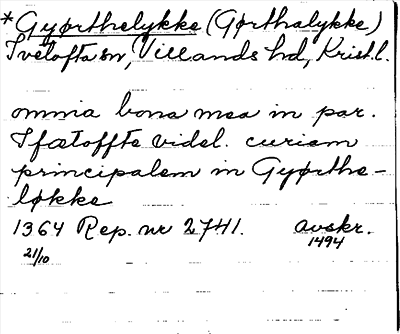 *Gyørthelykke (Gørthalykke)
Tvetofta sn, Villands hd, Krist.l.
omnia bona mea in par.
Tfætoffte videl. curiam
principalem in Gyørthe-
løkke
1364 Rep. nr 2741. avskr.
21/10 1494